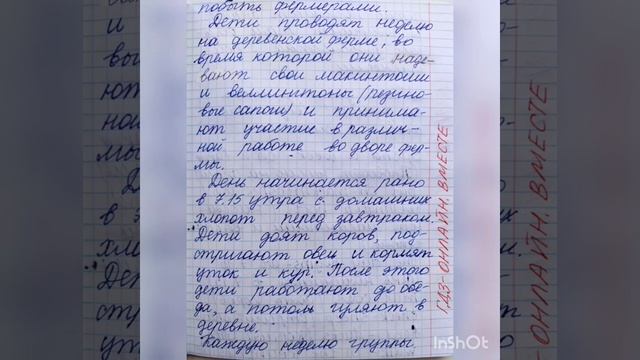 побыть фермерами.
Дети проводят неделю
на деревенской ферме, во
время которой они наде-
вают свои макинтоши
и веллингтоны (резино-
вые сапоги) и принима-
ют участие в различ-
ной работе во дворе фер-
мы.
День начинается рано
в 7.15 утра с домашних
хлопот перед завтраком.
Дети доят коров, под-
стригают овец и кормят
уток и кур. После этого
дети работают до обе-
да, а потом гуляют в
деревне.
Каждую неделю группы
ГДЗ ОНЛАЙН. ВМЕСТЕ
InShOt